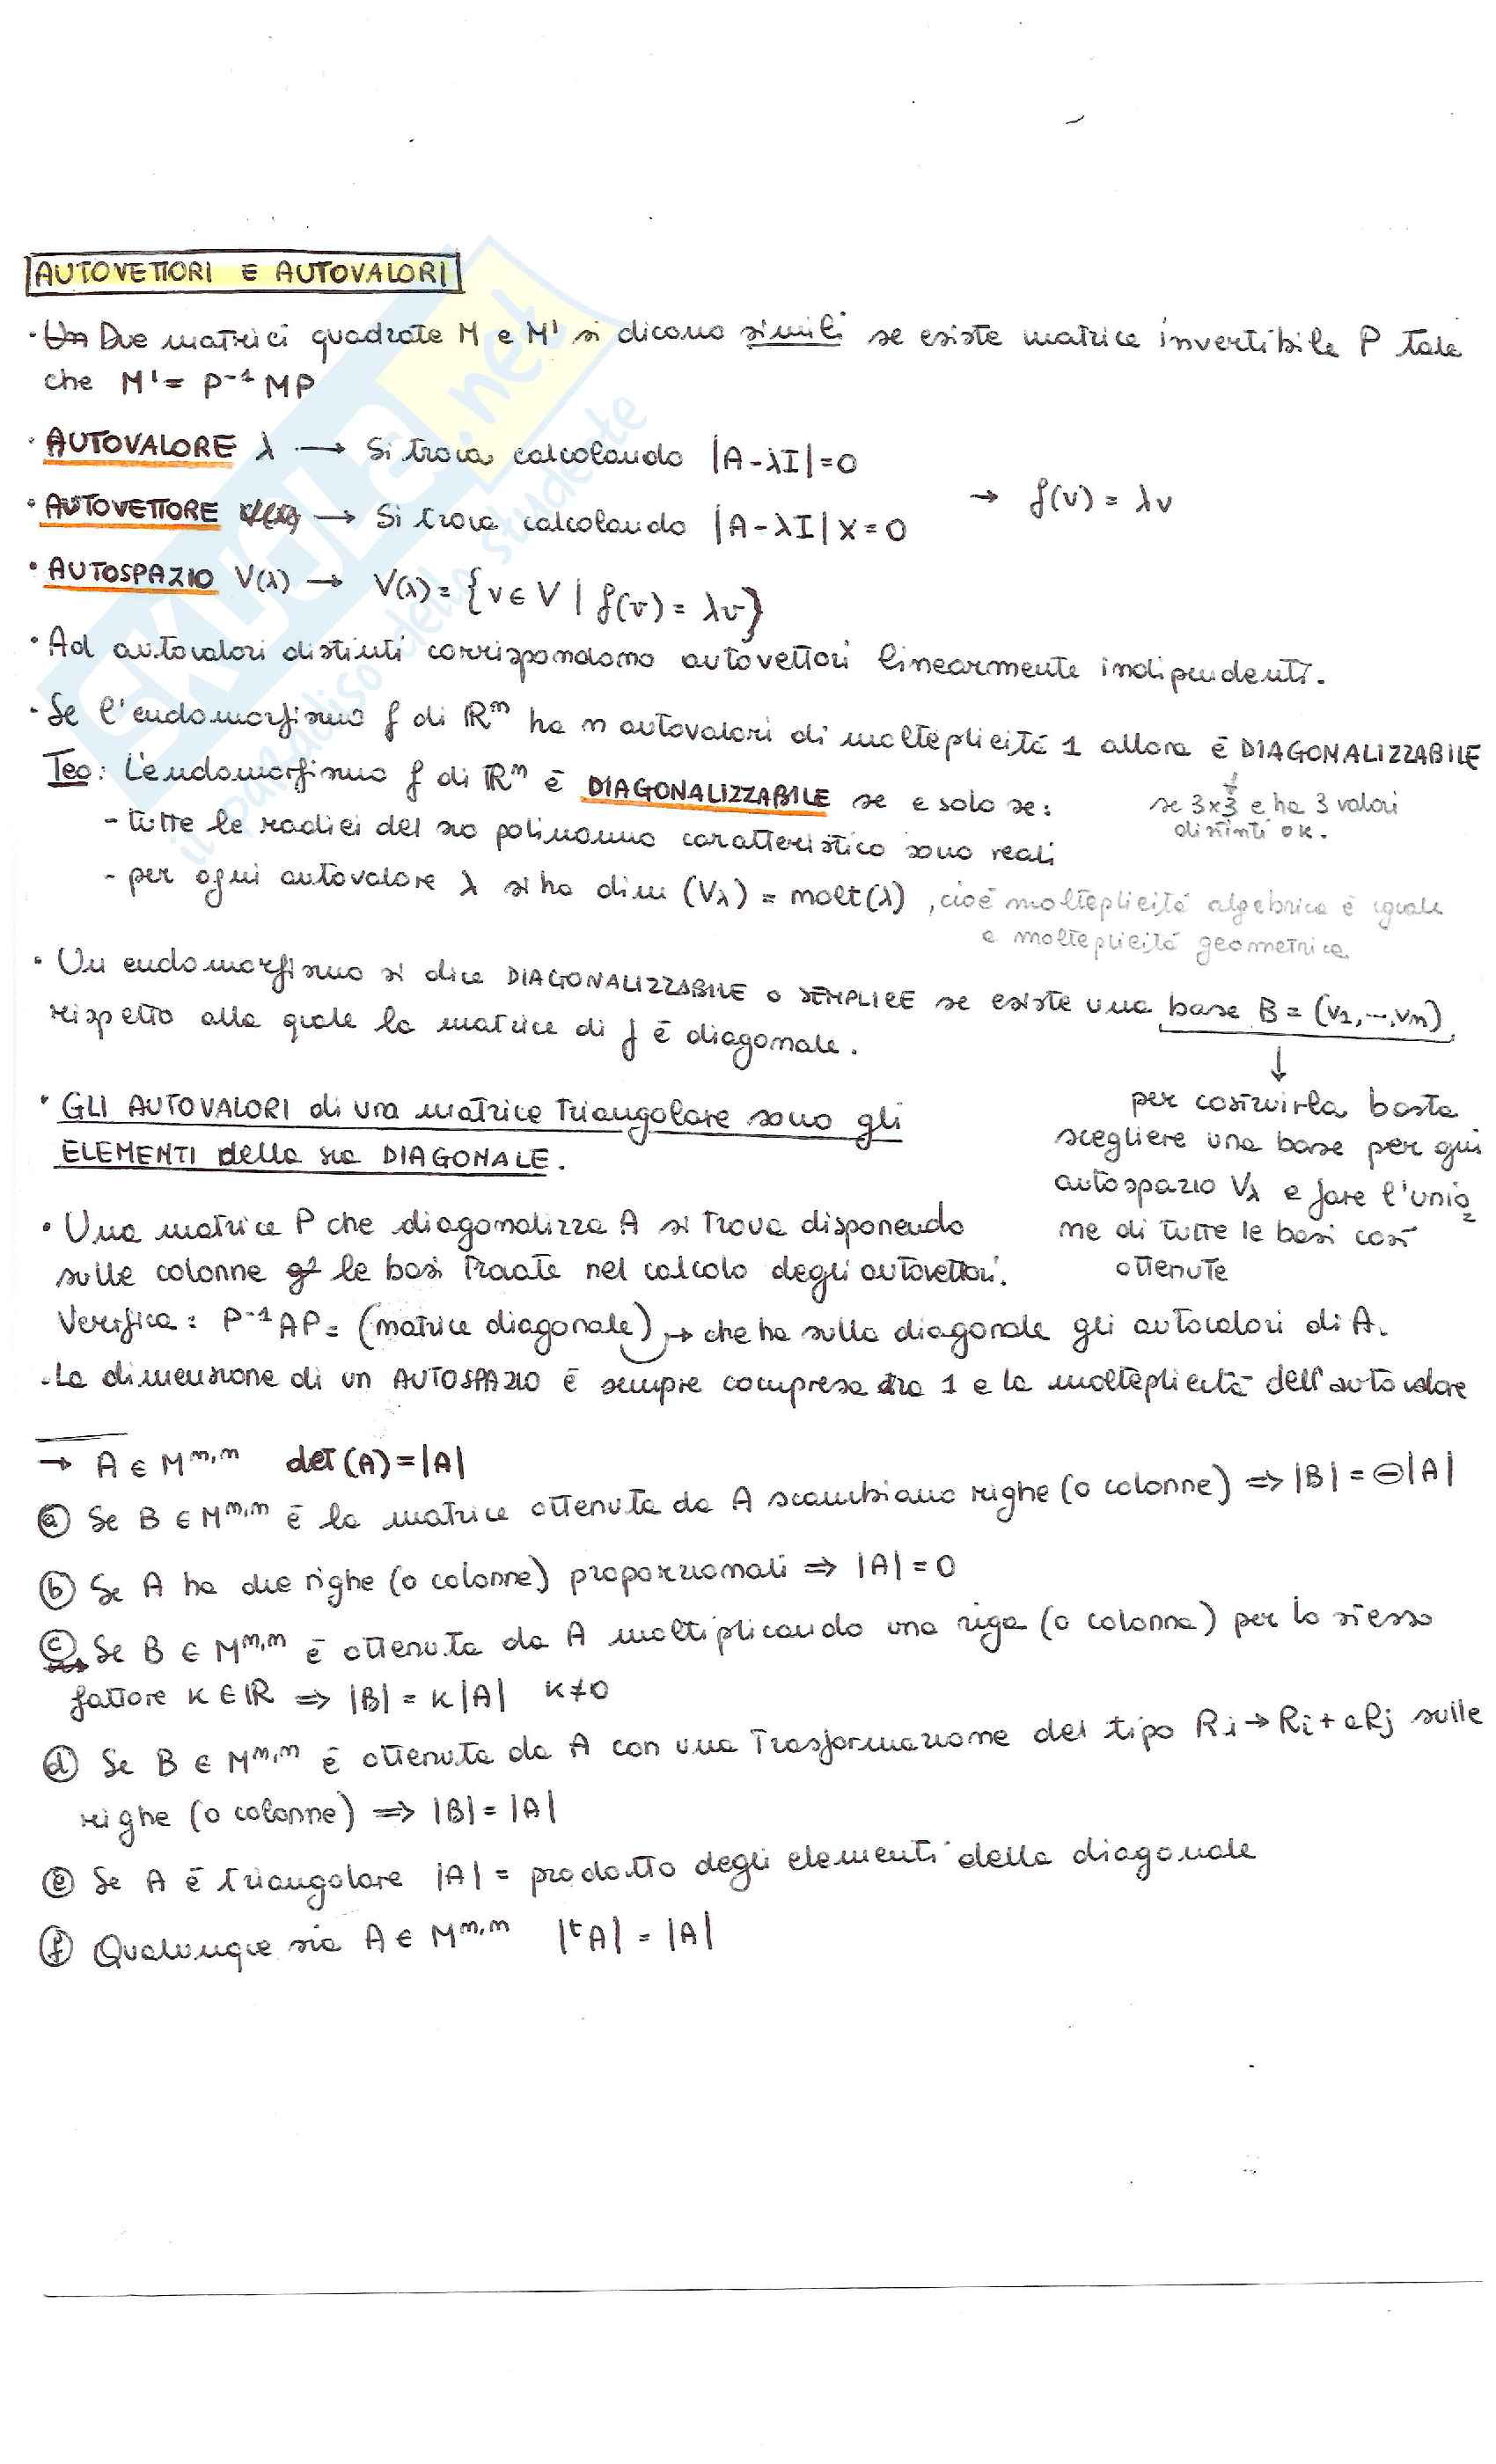 AUTOVETTORI E AUTOVALORI
· Un Due matrici quadrate M e M' si dicono simili se esiste matrice invertibile P tale
che M' = P⁻¹ M P
· AUTOVALORE λ → Si trova calcolando |A-λI|=0
→ f(v) = λv
· AUTOVETTORE → Si trova calcolando |A-λI| X = 0
· AUTOSPAZIO V(λ) → V(λ) = {v ∈ V | f(v) = λv}
· Ad autovalori distinti corrispondono autovettori linearmente indipendenti.
· Se l'endomorfismo f di ℝⁿ ha n autovalori di molteplicità 1 allora è DIAGONALIZZABILE
↓
se 3x3 e ha 3 valori
distinti ok.
Teo: L'endomorfismo f di ℝⁿ è DIAGONALIZZABILE se e solo se:
- tutte le radici del suo polinomio caratteristico sono reali
- per ogni autovalore λ si ha dim (Vλ) = molt(λ), cioè molteplicità algebrica è uguale
a molteplicità geometrica
· Un endomorfismo si dice DIAGONALIZZABILE o SEMPLICE se esiste una base B = (v1, ..., vn)
rispetto alla quale la matrice di f è diagonale.
↓
per costruirla basta
scegliere una base per gni
autospazio Vλ e fare l'unio=
ne di tutte le basi così
ottenute
· GLI AUTOVALORI di una matrice triangolare sono gli
ELEMENTI della sua DIAGONALE.
· Una matrice P che diagonalizza A si trova disponendo
sulle colonne le basi trovate nel calcolo degli autovettori.
Verifica: P⁻¹AP = (matrice diagonale) → che ha sulla diagonale gli autovalori di A.
· La dimensione di un AUTOSPAZIO è sempre compresa tra 1 e la molteplicità dell'autovalore
→ A ∈ Mⁿ,ⁿ det(A) = |A|
ⓐ Se B ∈ Mⁿ,ⁿ è la matrice ottenuta da A scambiano righe (o colonne) ⇒ |B| = ⊖|A|
ⓑ Se A ha due righe (o colonne) proporzionali ⇒ |A| = 0
ⓒ Se B ∈ Mⁿ,ⁿ è ottenuta da A moltiplicando una riga (o colonna) per lo stesso
fattore K ∈ ℝ ⇒ |B| = K|A| K≠0
ⓓ Se B ∈ Mⁿ,ⁿ è ottenuta da A con una trasformazione del tipo Ri → Ri + aRj sulle
righe (o colonne) ⇒ |B| = |A|
ⓔ Se A è triangolare |A| = prodotto degli elementi della diagonale
ⓕ Qualunque sia A ∈ Mⁿ,ⁿ |ᵗA| = |A|
SKUOLA.net
il paradiso dello studente